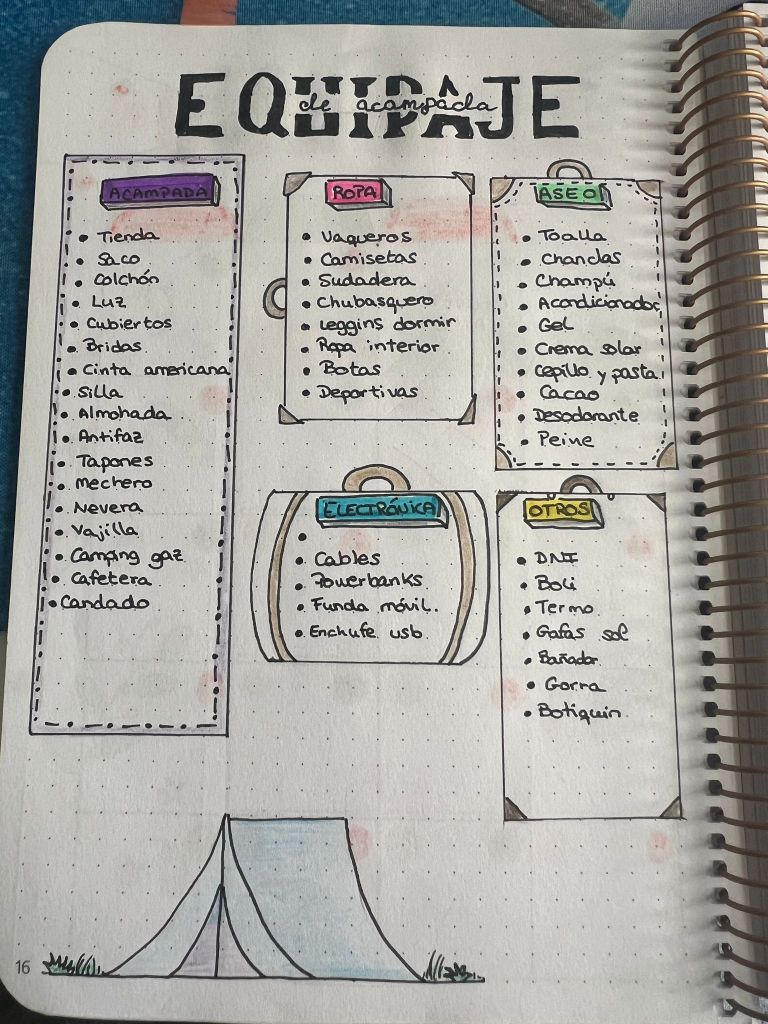 EQUIPAJE
de acampada
ACAMPADA
• Tienda
• Saco
• Colchón
• Luz
• Cubiertos
• Bridas
• Cinta americana
• Silla
• Almohada
• Antifaz
• Tapones
• Mechero
• Nevera
• Vajilla
• Camping gaz
• Cafetera
• Candado
ROPA
• Vaqueros
• Camisetas
• Sudadera
• Chubasquero
• Leggins dormir
• Ropa interior
• Botas
• Deportivas
ASEO
• Toalla
• Chanclas
• Champú
• Acondicionador
• Gel
• Crema solar
• Cepillo y pasta
• Cacao
• Desodorante
• Peine
ELECTRÓNICA
•
• Cables
• Powerbanks
• Funda móvil.
• Enchufe usb
OTROS
• DNI
• Boli
• Termo
• Gafas sol
• Bañador
• Gorra
• Botiquín
16